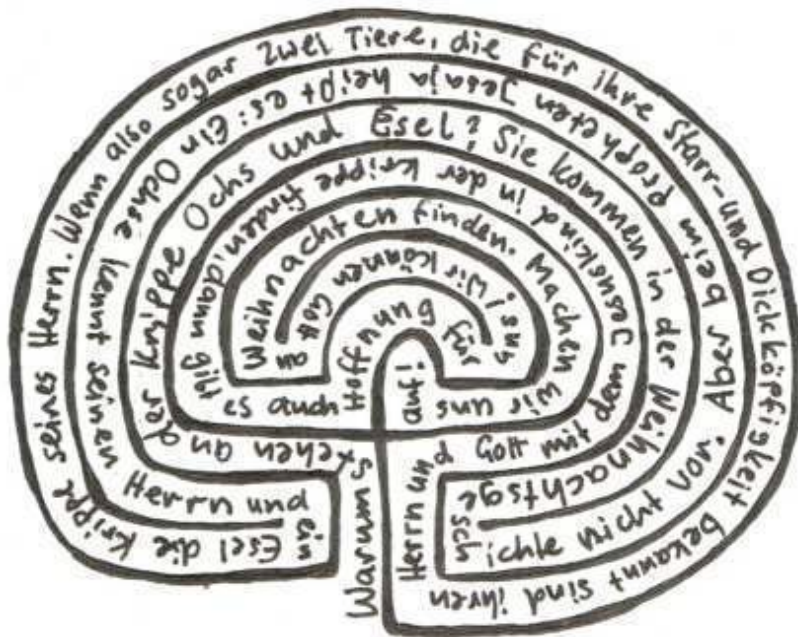 Warum stehen an der Krippe Ochs und Esel? Sie kommen in der Weihnachtsgeschichte nicht vor.
Aber beim propheten Jesaja heißt es: Ein Ochse kennt seinen Herrn und ein Esel die Krippe seines Herrn.
Wenn also sogar zwei Tiere, die für ihre Starr- und Dickköpfigkeit bekannt sind ihren Herrn und Gott mit dem Jesuskind in der Krippe finden, dann gibt es auch Hoffnung für uns!
Wir können Gott an Weihnachten finden. Machen wir uns auf!